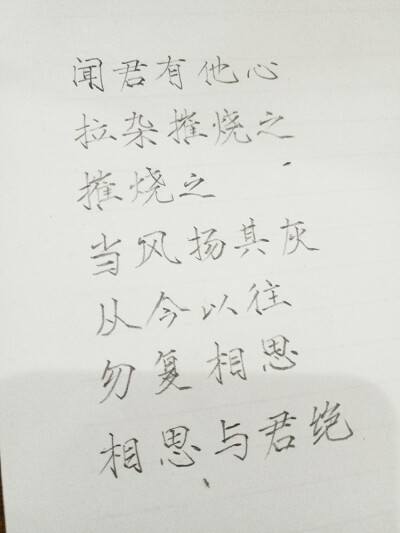 闻君有他心
拉杂摧烧之
摧烧之
当风扬其灰
从今以往
勿复相思
相思与君绝